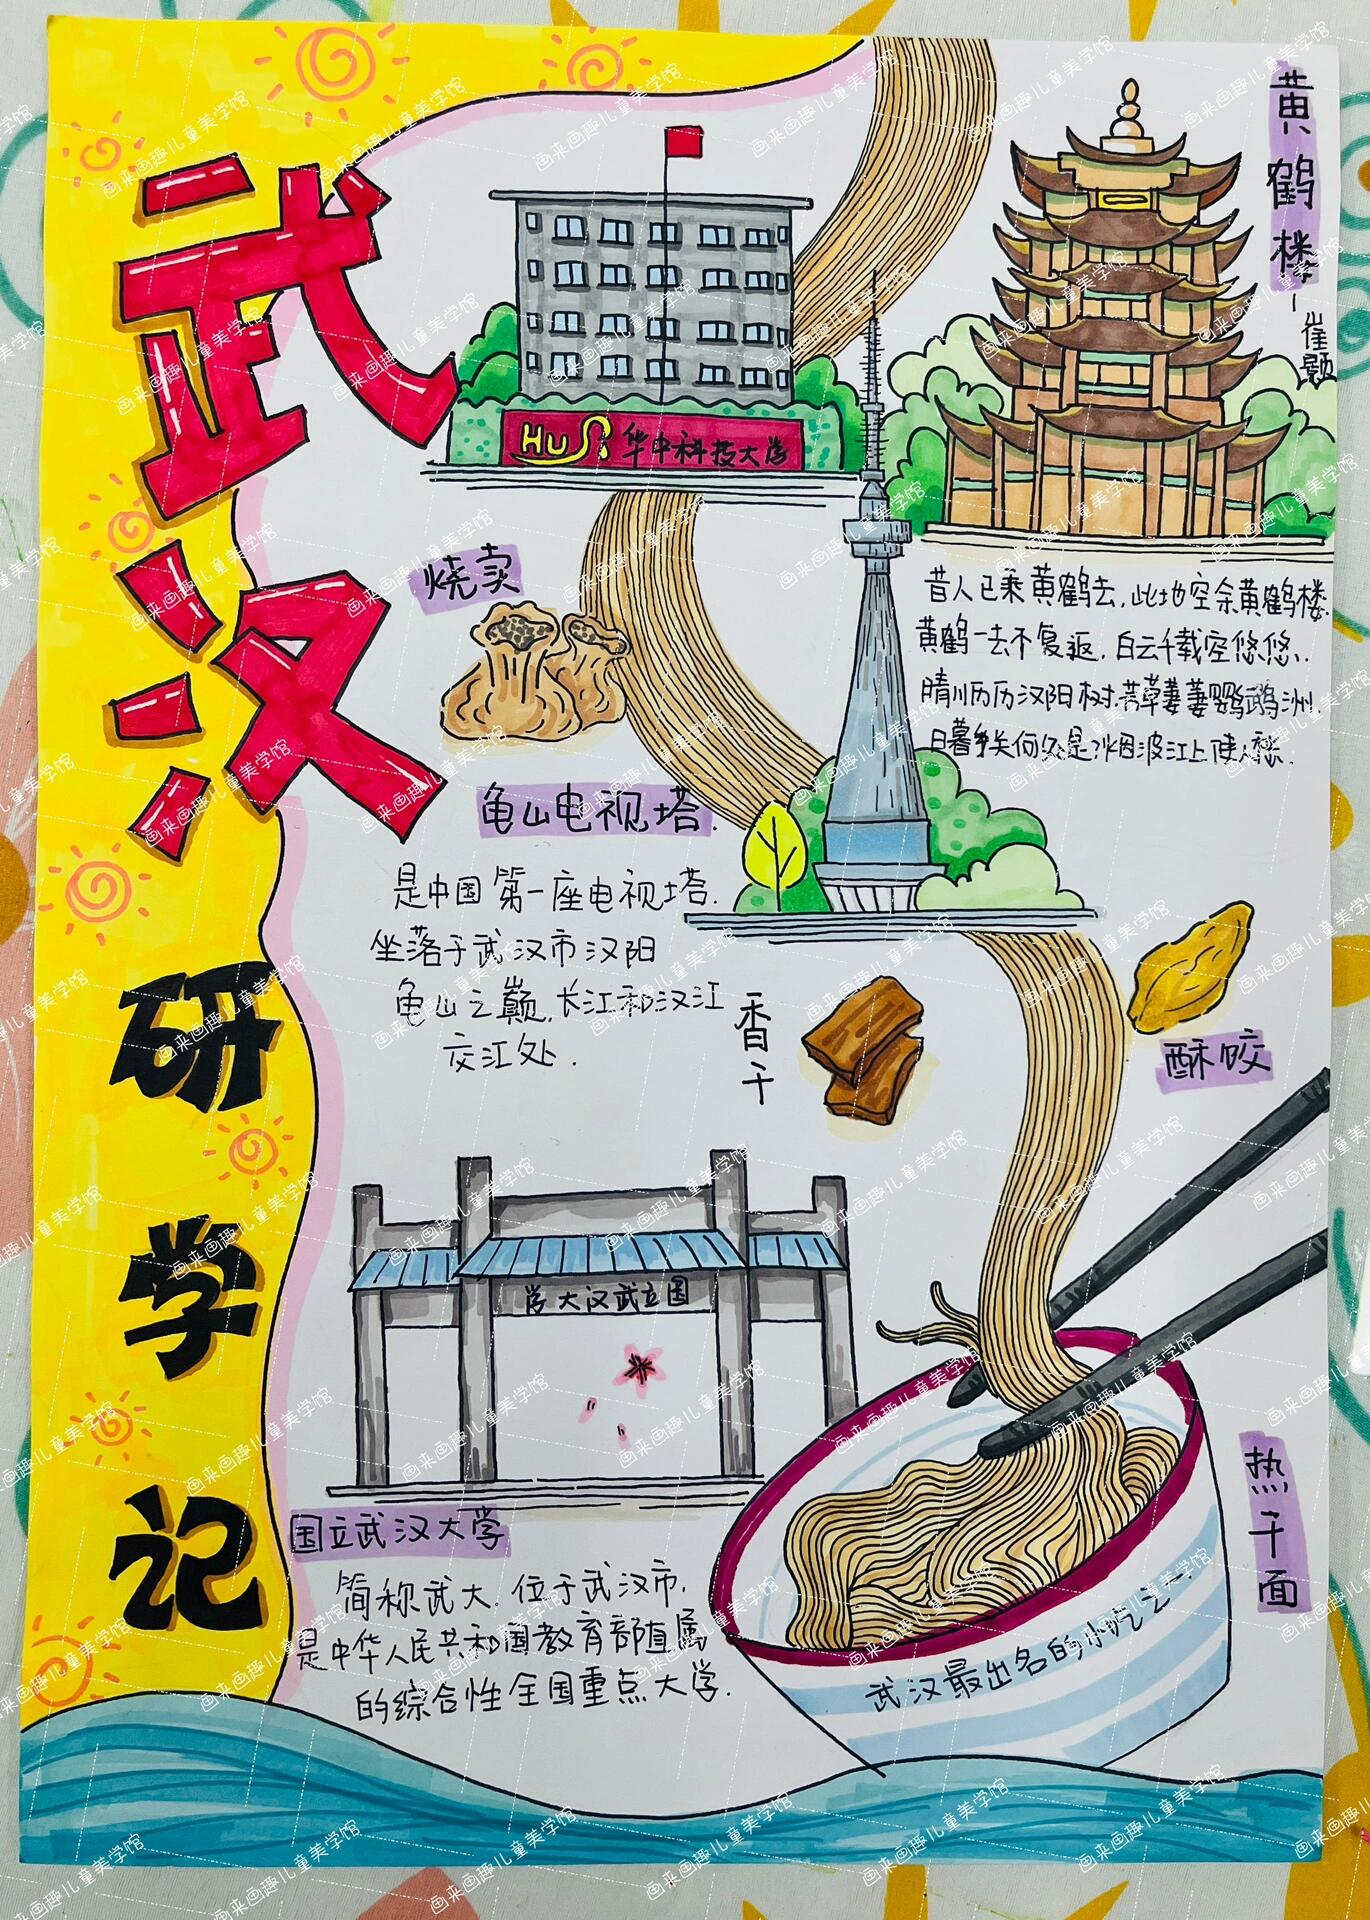 武汉研学记
HUST 华中科技大学
黄鹤楼
-崔颢
昔人已乘黄鹤去,此地空余黄鹤楼.
黄鹤一去不复返,白云千载空悠悠.
晴川历历汉阳树,芳草萋萋鹦鹉洲.
日暮乡关何处是?烟波江上使人愁.
烧卖
龟山电视塔.
是中国第一座电视塔.
坐落于武汉市汉阳
龟山之巅,长江和汉江
交汇处.
香干
酥饺
学大汉武立国
国立武汉大学
简称武大,位于武汉市,
是中华人民共和国教育部直属
的综合性全国重点大学.
热干面
武汉最出名的小吃之一
画来画趣儿童美学馆